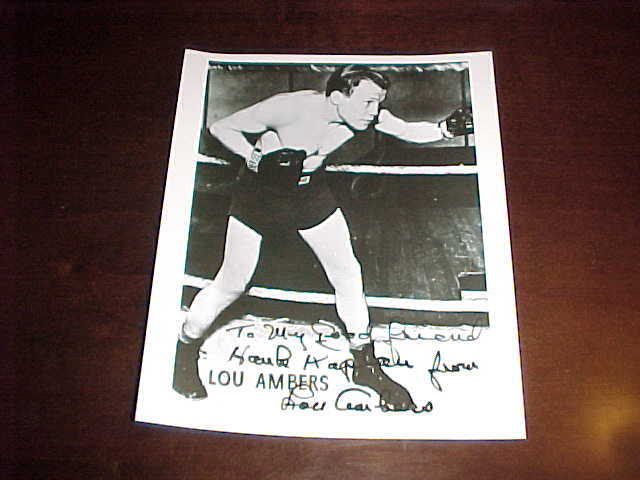 To My Good friend
Hank Kaplan from
LOU AMBERS
Lou Ambers